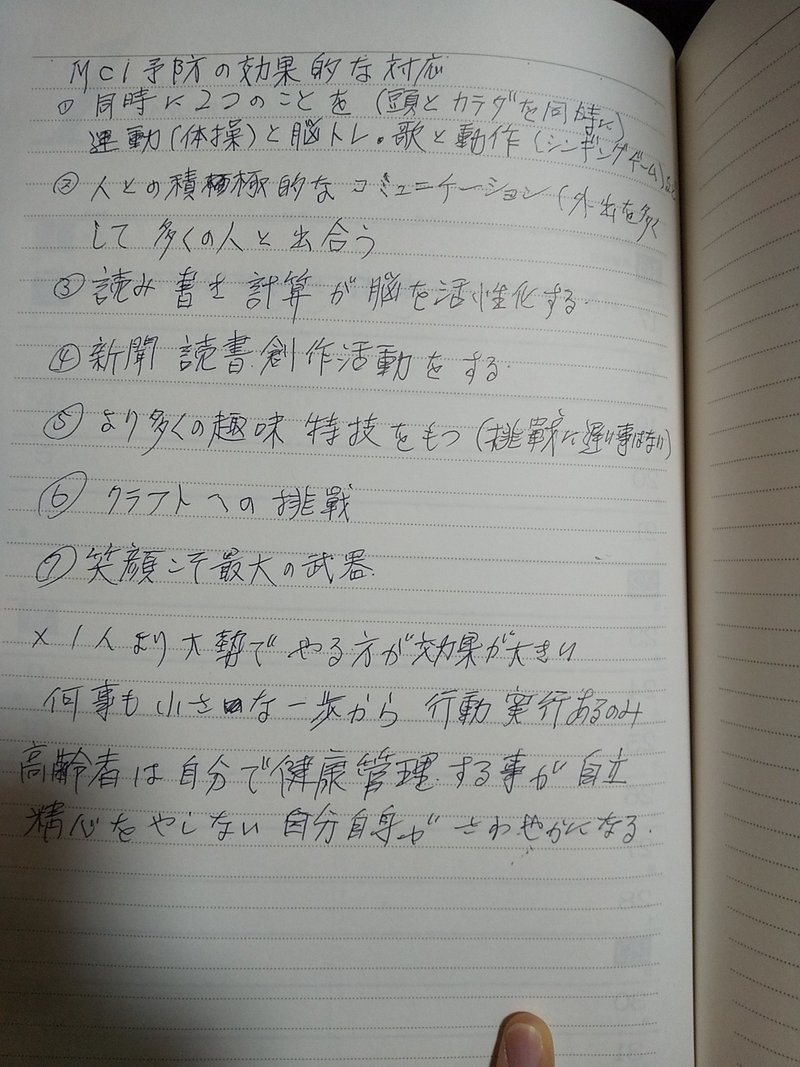 MCI予防の効果的な対応
① 同時に2つのことを (頭とカラダを同時に)
運動(体操)と脳トレ・歌と動作 (シンギングゲーム)など
② 人との積極的なコミュニケーション (外出を多く
して 多くの人と出合う
③ 読み書き計算が脳を活性化する.
④ 新聞 読書.創作活動をする.
⑤ より多くの趣味 特技をもつ (挑戦に遅い事はない)
⑥ クラフトへの挑戦
⑦ 笑顔こそ最大の武器.
× 1人より大勢でやる方が効果が大きい
何事も小さな一歩から 行動 実行あるのみ
高齢者は自分で健康管理.する事が自立
精心をやしない 自分自身が さわやかになる.